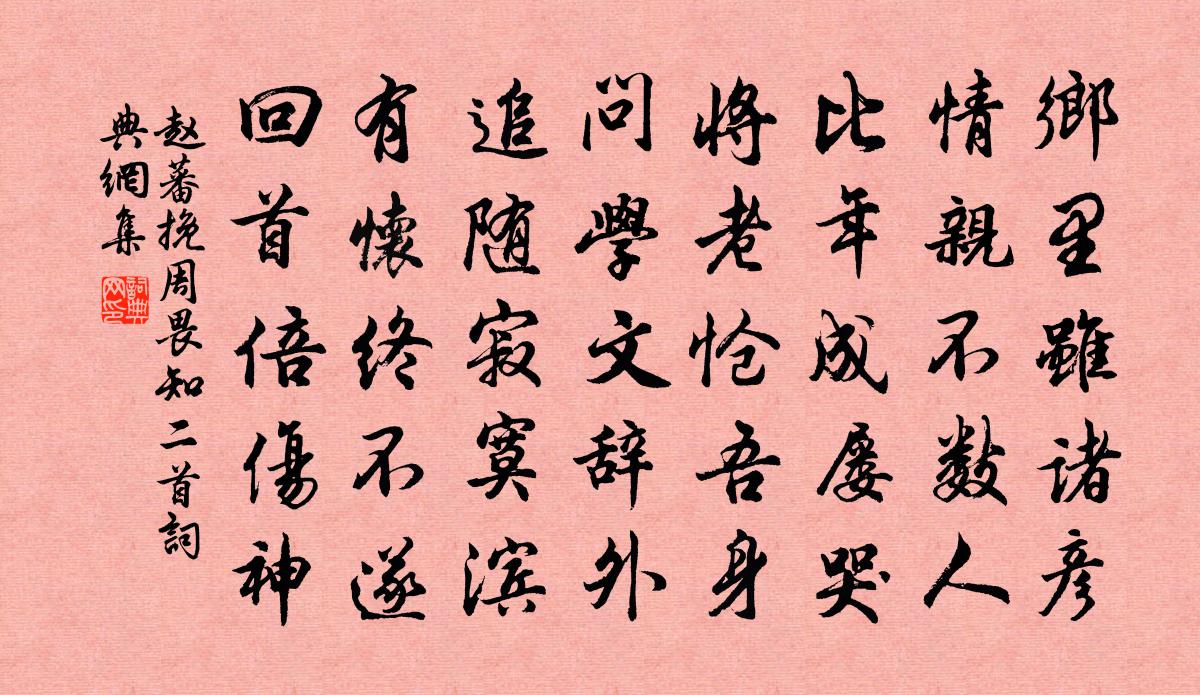 鄉里雖諸彦
情親不數人
比年成屡哭
將老怆吾身
問學文辞外
追随寂寞滨
有懷终不遂
回首倍傷神
赵蕃挽周畏知二首詞
典網集
詞典
网印